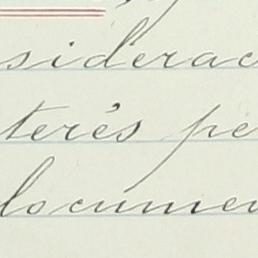 siderac
terés pe
documen